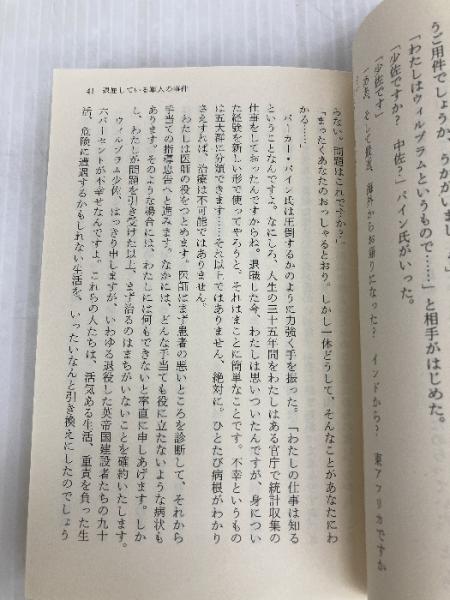 うご用件でしょうか、うかがいまし
「わたしはウィルブラムというもので……」と相手がはじめた。
「少佐ですか？　中佐？」パイン氏がいった。
「少佐です」
海外からお帰りになった？　インドから？　東アフリカですか
41　退屈している軍人の事件
らない。問題はこれですか？」
「まったくあなたのおっしゃるとおり。しかし一体どうして、そんなことがあなたにわ
かる……」
パーカー・パイン氏は圧倒するかのように力強く手を振った。「わたしの仕事は知る
ということなんですよ。なにしろ、人生の三十五年間をわたしはある官庁で統計収集の
仕事をしておったんですからね。退職した今、わたしは思いついたんですが、身につい
た経験を新しい形で使ってやろうと、それはまことに簡単なことです。不幸というもの
は五大群に分類できます……それ以上ではありません、絶対に。ひとたび病根がわかり
さえすれば、治療は不可能ではありません。
わたしは医師の役をつとめます。医師はまず患者の悪いところを診断して、それから
手当ての指導忠告へと進みます。なかには、どんな手当ても役に立たないような病状も
あります。そのような場合には、わたしには何もできないと率直に申しあげます。しか
し、わたしが問題を引き受けた以上、まず治るのはまちがいないことを確約いたします。
ウィルブラム少佐、はっきり申しますが、いわゆる退役した英帝国建設者たちの九十
六パーセントが不幸せなんですよ。これらの人たちは、活気ある生活、重責を負った生
活、危険に遭遇するかもしれない生活を、いったいなんと引き換えにしたのでしょう